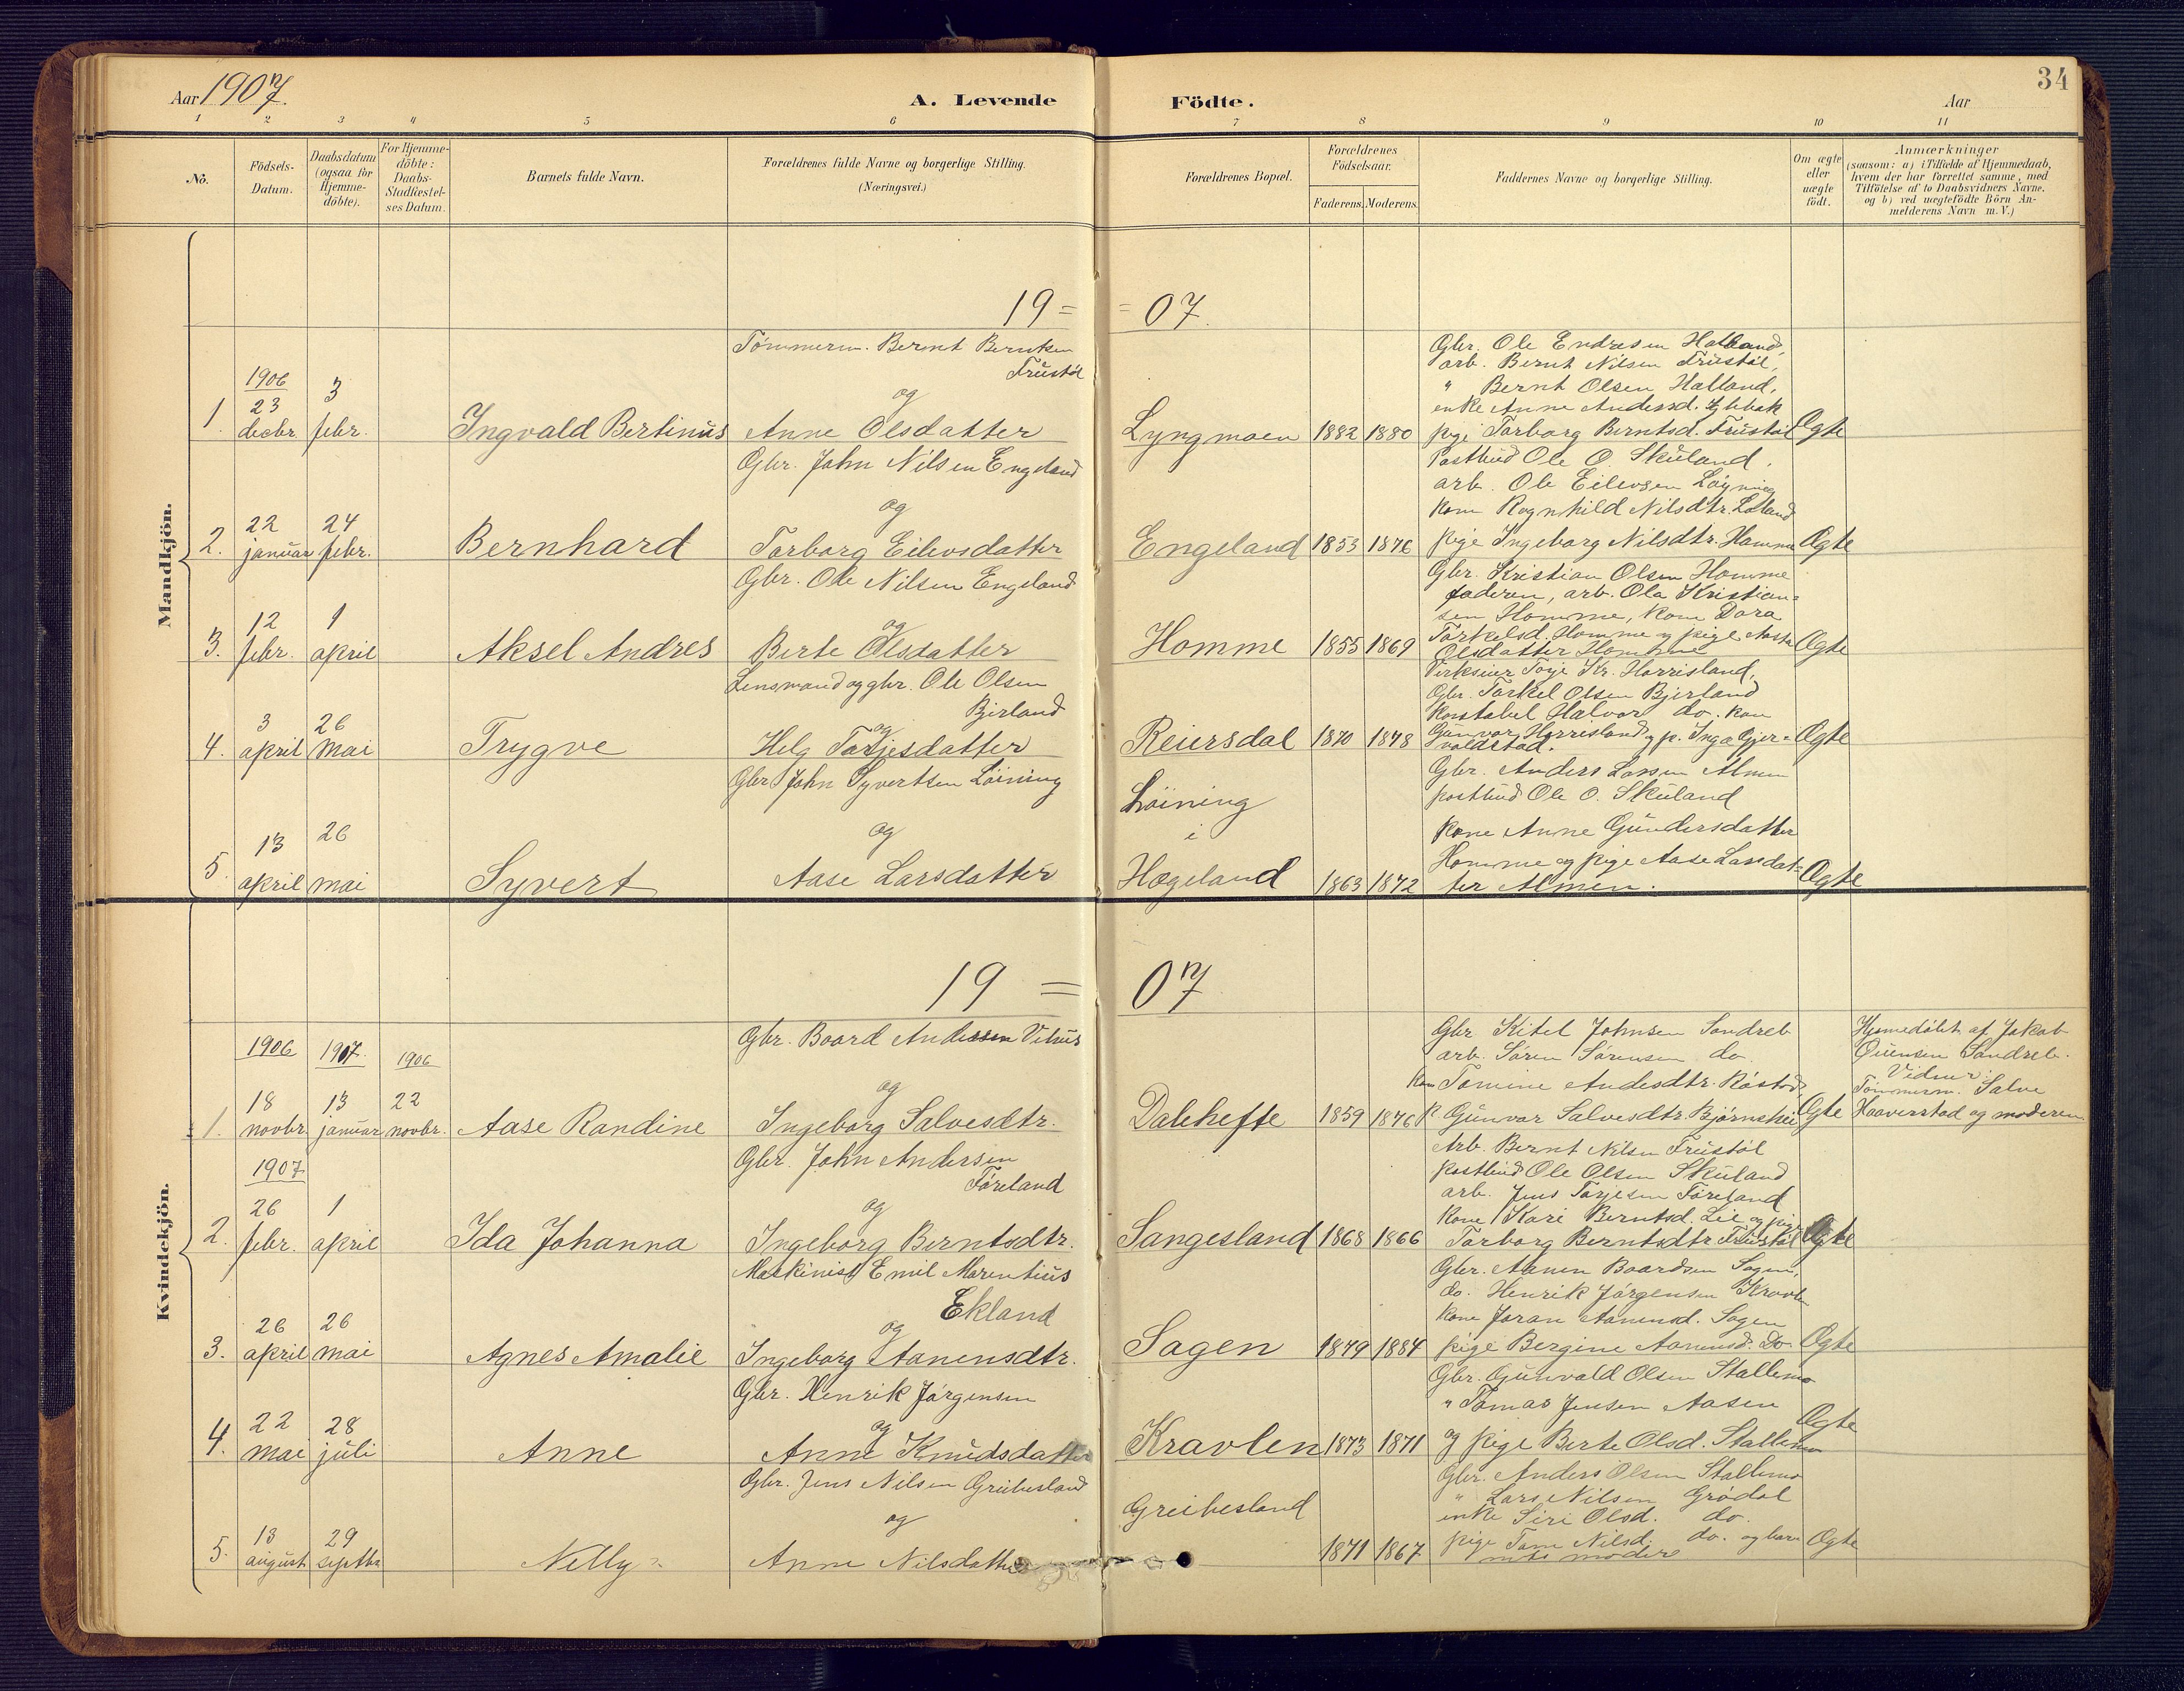 34
Aar 1907.
A. Levende Födte.
Aar
1 2 3 4 5 6 7 8 9 10 11
No.
Födsels-
Datum.
Daabsdatum
(ogsaa for
Hjemme-
döbte).
For Hjemme-
döbte:
Daabs-
Stadfæstel-
ses Datum.
Barnets fulde Navn.
Forældrenes fulde Navne og borgerlige Stilling.
(Næringsvei.)
Forældrenes Bopæl.
Forældrenes
Födselsaar.
Faderens. Moderens.
Faddernes Navne og borgerlige Stilling.
Om ægte
eller
uægte
födt.
Anmærkninger
(saasom: a) i Tilfælde af Hjemmedaab,
hvem der har forrettet samme, med
Tilföielse af to Daabsvidners Navne.
og b) ved uægtefödte Börn An-
melderens Navn m. V.)
Mandkjön.
19 = = 07.
1.
1906
23
decbr.
3
febr.
Ingvald Bertinus
Tömmerm. Bernt Berntsen
Frustöl
og
Anne Olsdatter
Lyngmoen
1882
1880
Gbr. Ole Endresen Hatland,
arb. Bernt Nilsen Frustöl,
" Bernt Olsen Hatland,
enke Anne Andersd.
pige Torborg Berntsd. Frustöl
Ægte
2.
22
januar
24
febr.
Bernhard
Gbr. John Nilsen Engeland
og
Torborg Eilevsdatter
Engeland
1853
1876
Postbud Ole O. Skuland,
arb. Ole Eilevsen Löyning
kone Ragnhild Nilsdtr. Loland
pige Ingeborg Nilsdtr. Homme
Ægte
3.
12
febr.
1
april
Aksel Andres
Gbr. Ole Nilsen Engeland
og
Berte Olsdatter
Homme
1855
1869
Gbr. Kristian Olsen Homme
faderen, arb. Ola Kristian=
sen Homme, kone Dora
Torkelsd. Homme og pige Aasta
Olsdatter Homme
Ægte
4.
3
april
26
mai
Trygve
Lensmand og gbr. Ole Olsen
Bjerland
og
Helg Torjesdatter
Reiersdal
1870
1878
Torje Kr. Horrisland,
Gbr. Torkel Olsen Bjerland
Konstabel Halvor do. kone
Gunvor Horrisland og p. Inga Gjer=
voldstad.
Ægte
5.
13
april
26
mai
Syvert
Gbr John Syvertsen Löining
og
Aase Larsdatter
Löining
i
Hægeland
1863
1872
Gbr. Anders Larsen Almen
postbud Ole O. Skuland
kone Anne Gundersdatter
Homme og pige Aase Larsdat=
ter Almen.
Ægte
Kvindekjön.
19 = 07
1.
1906
18
novbr.
1907.
13
januar
1906
22
novbr.
Aase Randine
Gbr. Baard Andersen Vehus
og
Ingeborg Salvesdtr.
Dalehefte
1859
1876
Gbr Kitel Johnsen Sandreb
arb. Sören Sörensen do.
kone Tomine Andersdtr. Röstad,
p. Gunvor Salvesdtr. Björnshei
Ægte
Hjemedöbt af Jakob
Sandreb.
Vidner:
Tömmerm. Salve
Haaverstad og moderen.
2.
1907
26
febr.
1
april
Ida Johanna
Gbr. John Andersen
Föreland
og
Ingeborg Berntsdtr.
Sangesland
1868
1866
Arb. Bernt Nilsen Frustöl
postbud Ole Olsen Skuland
arb. Jens Torjesen Föreland
kone Kari Berntsd. Lie og pige
Torborg Berntsdtr Frustöl
Ægte
3.
26
april
26
mai
Agnes Amalie
Maskinist Emil Marentius
Ekland
og
Ingeborg Aanensdtr.
Sagen
1879
1884
Gbr. Aanen Baardsen Sagen,
do. Henrik Jörgensen Kravlen
kone Joran Aanensd. Sagen
pige Bergine Aanensd. Do.
Ægte
4.
22
mai
28
juli
Anne
Gbr. Henrik Jörgensen
og
Anne Knudsdatter
Kravlen
1873
1871
Gbr. Gunvald Olsen Stallemo
" Tomas Jensen Aasen
og pige Berte Olsd. Stallemo
Ægte
5.
13
august
29
septbr
Nelly
Gbr. Jens Nilsen Greibesland
og
Anne Nilsdatter
Greibesland
1871
1867
Gbr. Anders Olsen Stallemo
" Lars Nilsen Grödal
enke Siri Olsd. do.
pige Tone Nilsd. do. og bar=
nets moder
Ægte